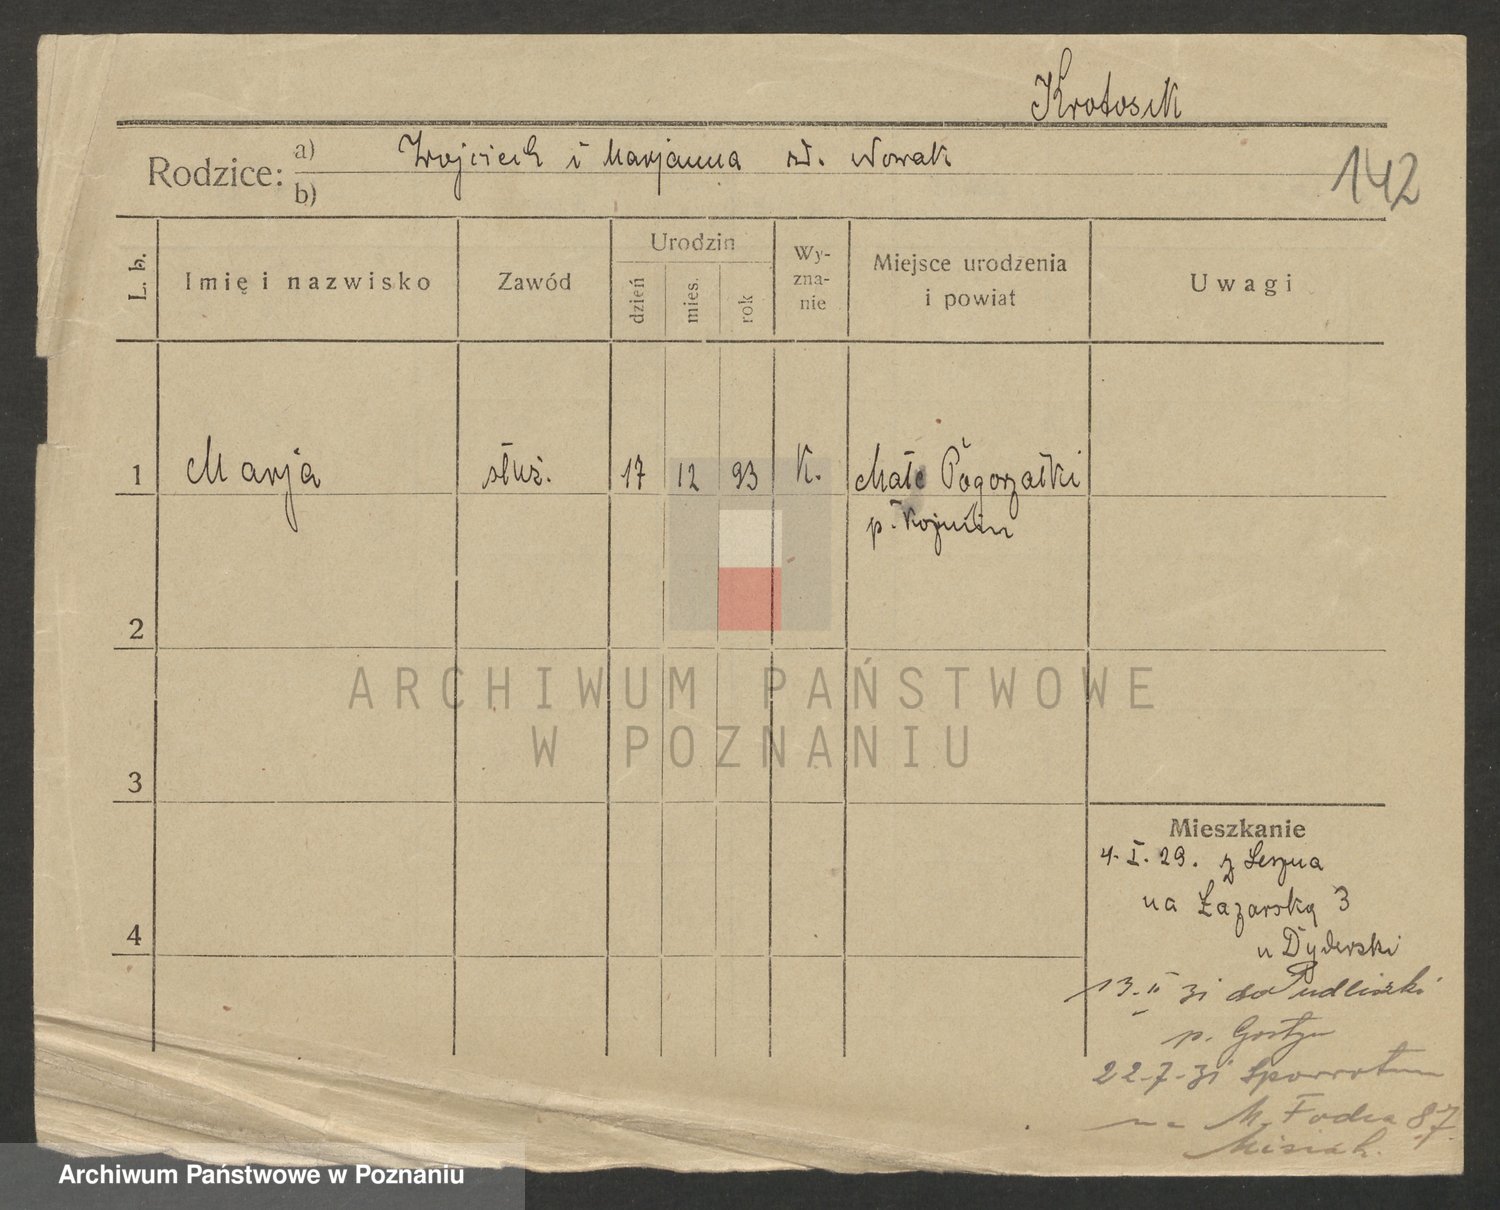 Krotosik
Rodzice: a) Wojciech i Marjanna rd. Nowak
b)
142
L. b.
Imię i nazwisko
Zawód
Urodzin
dzień
mies.
rok
Wy-
zna-
nie
Miejsce urodzenia
i powiat
Uwagi
1 Marja służ. 17 12 93 K. Małe Pogorzałki
p. Koźmin
2
3
4
Mieszkanie
4. I. 29. z Leszna
na Łazarską 3
u Dyderski
13. II 31 do Pudliszki
p. Gostyń
22-7-31 spowrotem
na M. Focha 87
Misiak.
ARCHIWUM PAŃSTWOWE
W POZNANIU
Archiwum Państwowe w Poznaniu